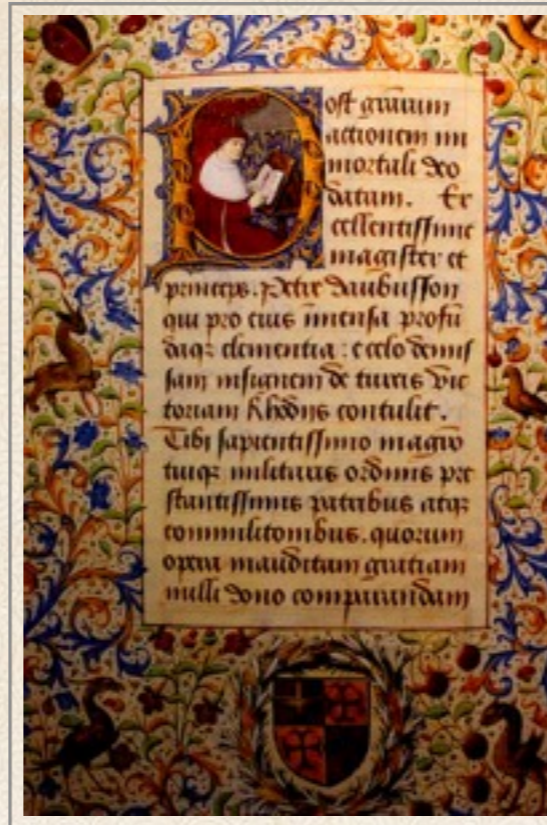 Post gratiarum
actionem im
mortali deo
datam. Ex
cellentissime
magister et
princeps. Petre daubusson
qui pro eius immensa profū
daqꝫ clementia: e celo demis
sam insignem de turcis vic
toriam Rhodijs contulit.
Tibi sapientissimo magro
tuiqꝫ militaris ordinis pre
stantissimis patribus atqꝫ
commilitonibus. quorum
opera mauditam gratiam
nulli dono comparandam